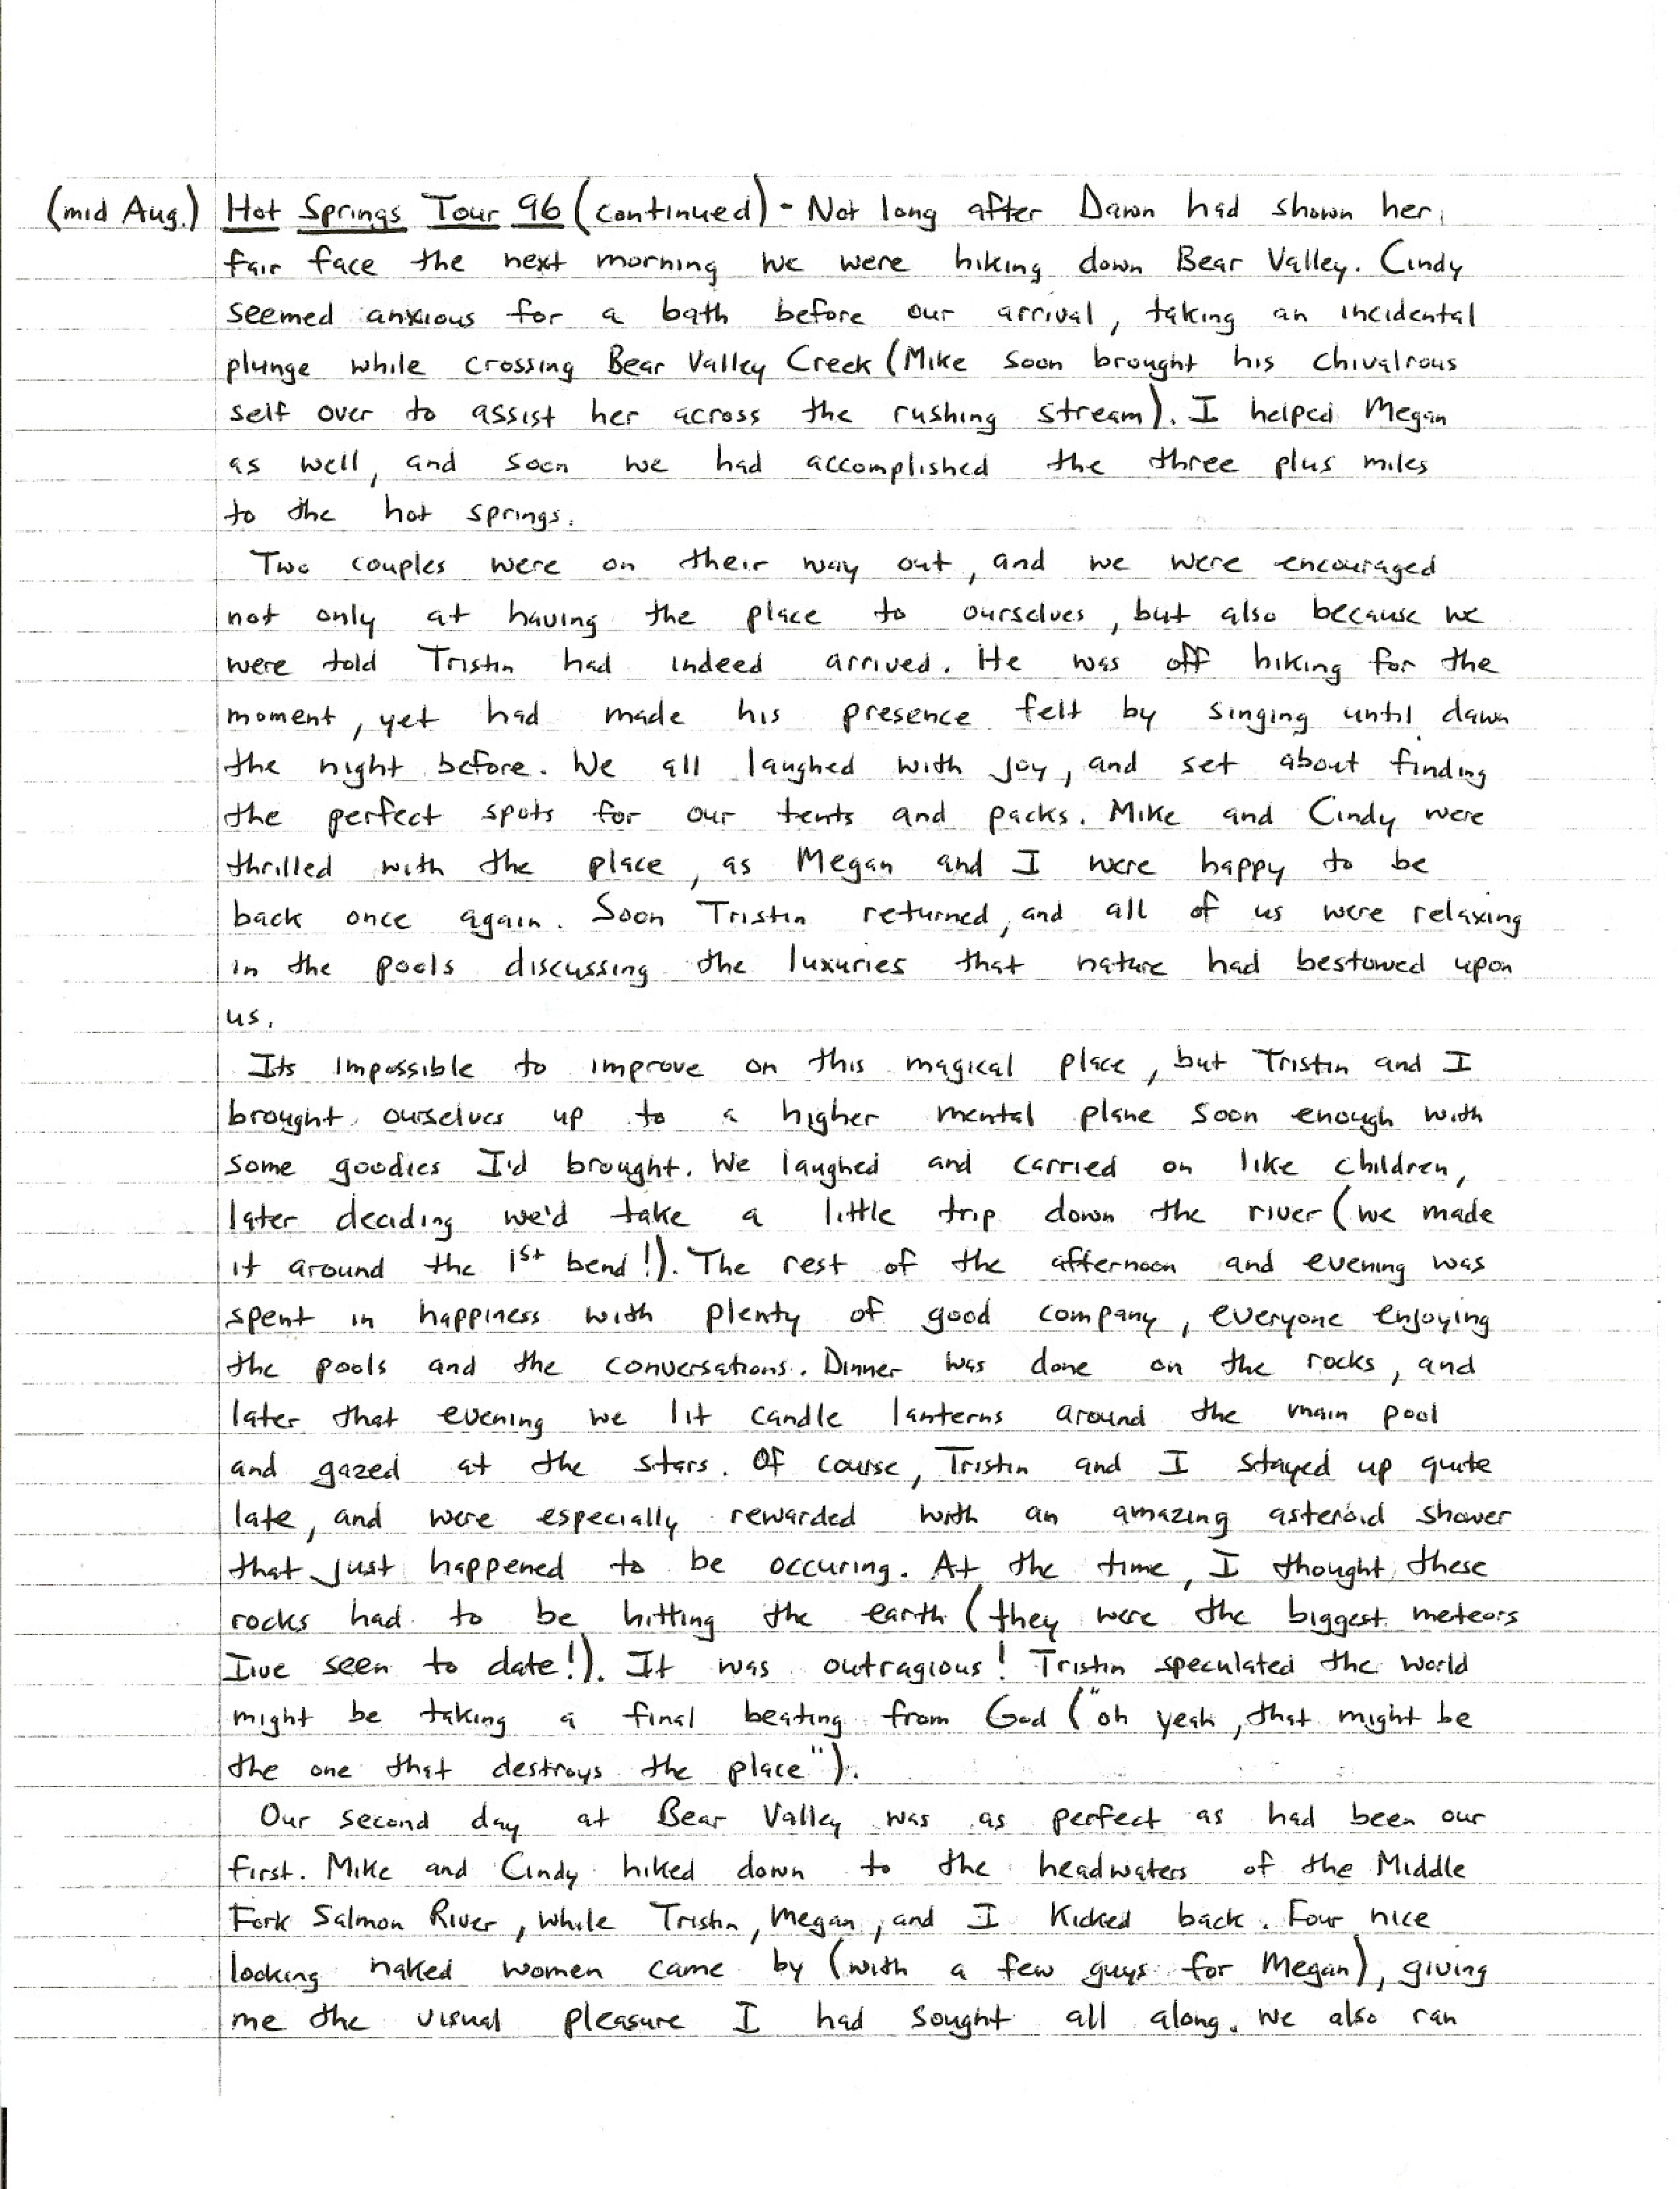 (mid Aug.) Hot Springs Tour 96 (continued) - Not long after Dawn had shown her
fair face the next morning we were hiking down Bear Valley. Cindy
seemed anxious for a bath before our arrival, taking an incidental
plunge while crossing Bear Valley Creek (Mike soon brought his chivalrous
self over to assist her across the rushing stream). I helped Megan
as well, and soon we had accomplished the three plus miles
to the hot springs.
Two couples were on their way out, and we were encouraged
not only at having the place to ourselves, but also because we
were told Tristin had indeed arrived. He was off hiking for the
moment, yet had made his presence felt by singing until dawn
the night before. We all laughed with joy, and set about finding
the perfect spots for our tents and packs. Mike and Cindy were
thrilled with the place, as Megan and I were happy to be
back once again. Soon Tristin returned, and all of us were relaxing
in the pools discussing the luxuries that nature had bestowed upon
us.
Its impossible to improve on this magical place, but Tristin and I
brought ourselves up to a higher mental plane soon enough with
some goodies I'd brought. We laughed and carried on like children,
later deciding we'd take a little trip down the river (we made
it around the 1st bend!). The rest of the afternoon and evening was
spent in happiness with plenty of good company, everyone enjoying
the pools and the conversations. Dinner was done on the rocks, and
later that evening we lit candle lanterns around the main pool
and gazed at the stars. Of course, Tristin and I stayed up quite
late, and were especially rewarded with an amazing asteroid shower
that just happened to be occuring. At the time, I thought these
rocks had to be hitting the earth (they were the biggest meteors
I've seen to date!). It was outragious! Tristin speculated the world
might be taking a final beating from God ("oh yeah, that might be
the one that destroys the place").
Our second day at Bear Valley was as perfect as had been our
first. Mike and Cindy hiked down to the headwaters of the Middle
Fork Salmon River, while Tristin, Megan, and I kicked back. Four nice
looking naked women came by (with a few guys for Megan), giving
me the visual pleasure I had sought all along. We also ran